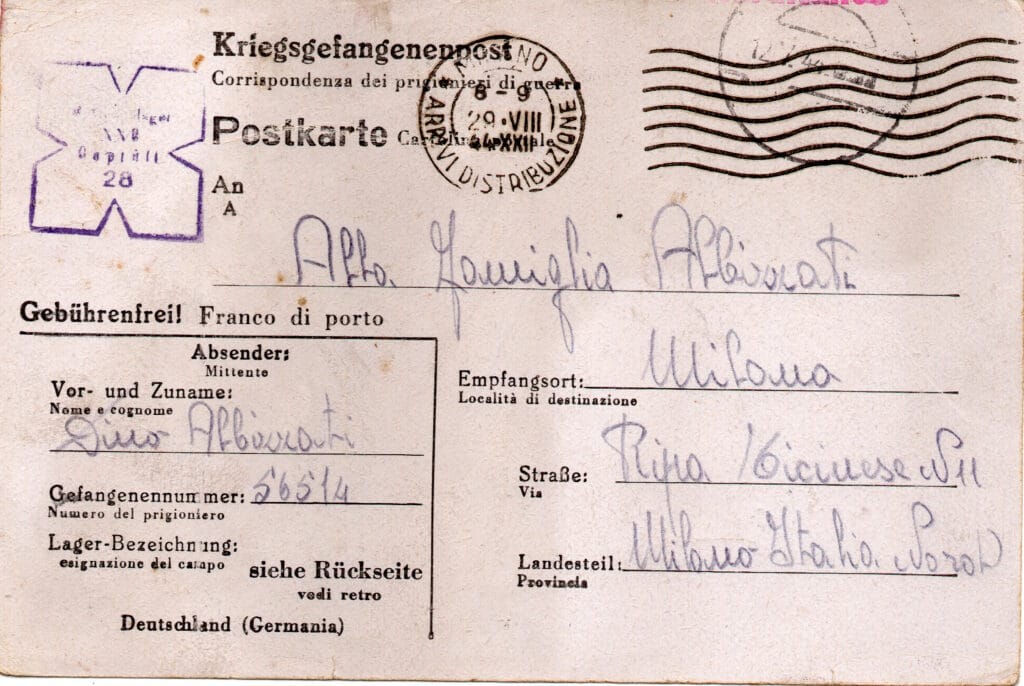 Kriegsgefangenenpost
Corrispondenza dei prigionieri di guerra
Postkarte
MILANO
8-9
29·VIII
44·XXII
ARRIVI DISTRIBUZIONE
Geprüft
28
An
A
Alla Famiglia Albizzati
Gebührenfrei! Franco di porto
Absender:
Mittente
Vor- und Zuname:
Nome e cognome
Dino Albizzati
Gefangenennummer: 56514
Numero del prigioniero
Lager-Bezeichnung:
esignazione del campo
siehe Rückseite
vedi retro
Deutschland (Germania)
Empfangsort: Milano
Località di destinazione
Straße: Ripa Ticinese N 11
Via
Landesteil: Milano Italia Nord
Provincia